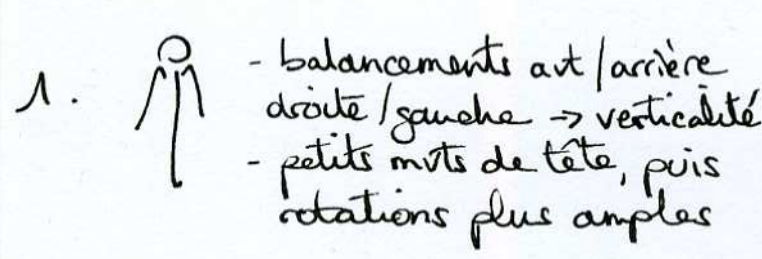 1.
- balancements avt/arrière
droite/gauche → verticalité
- petits mvts de tête, puis
rotations plus amples